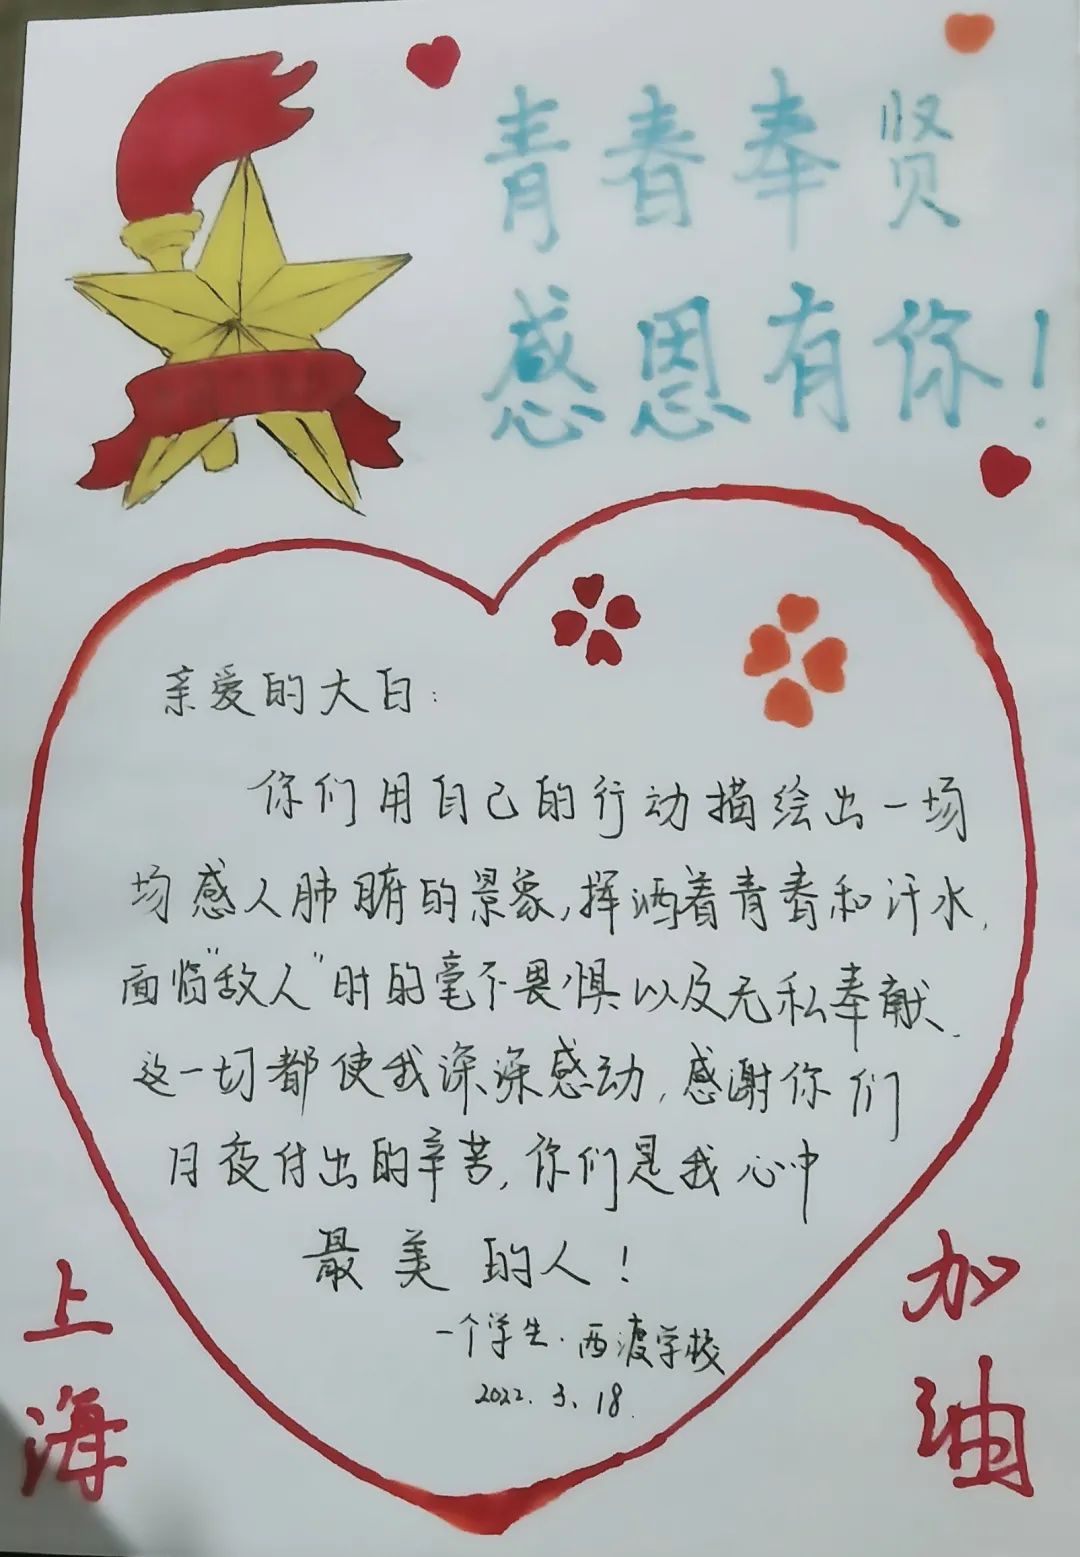 青春奉贤
感恩有你！
亲爱的大白：
你们用自己的行动描绘出一场
场感人肺腑的景象，挥洒着青春和汗水，
面临“敌人”时的毫不畏惧以及无私奉献，
这一切都使我深深感动，感谢你们
日夜付出的辛苦，你们是我心中
最美的人！
一个学生·西渡学校
2022.3.18.
上海
加油